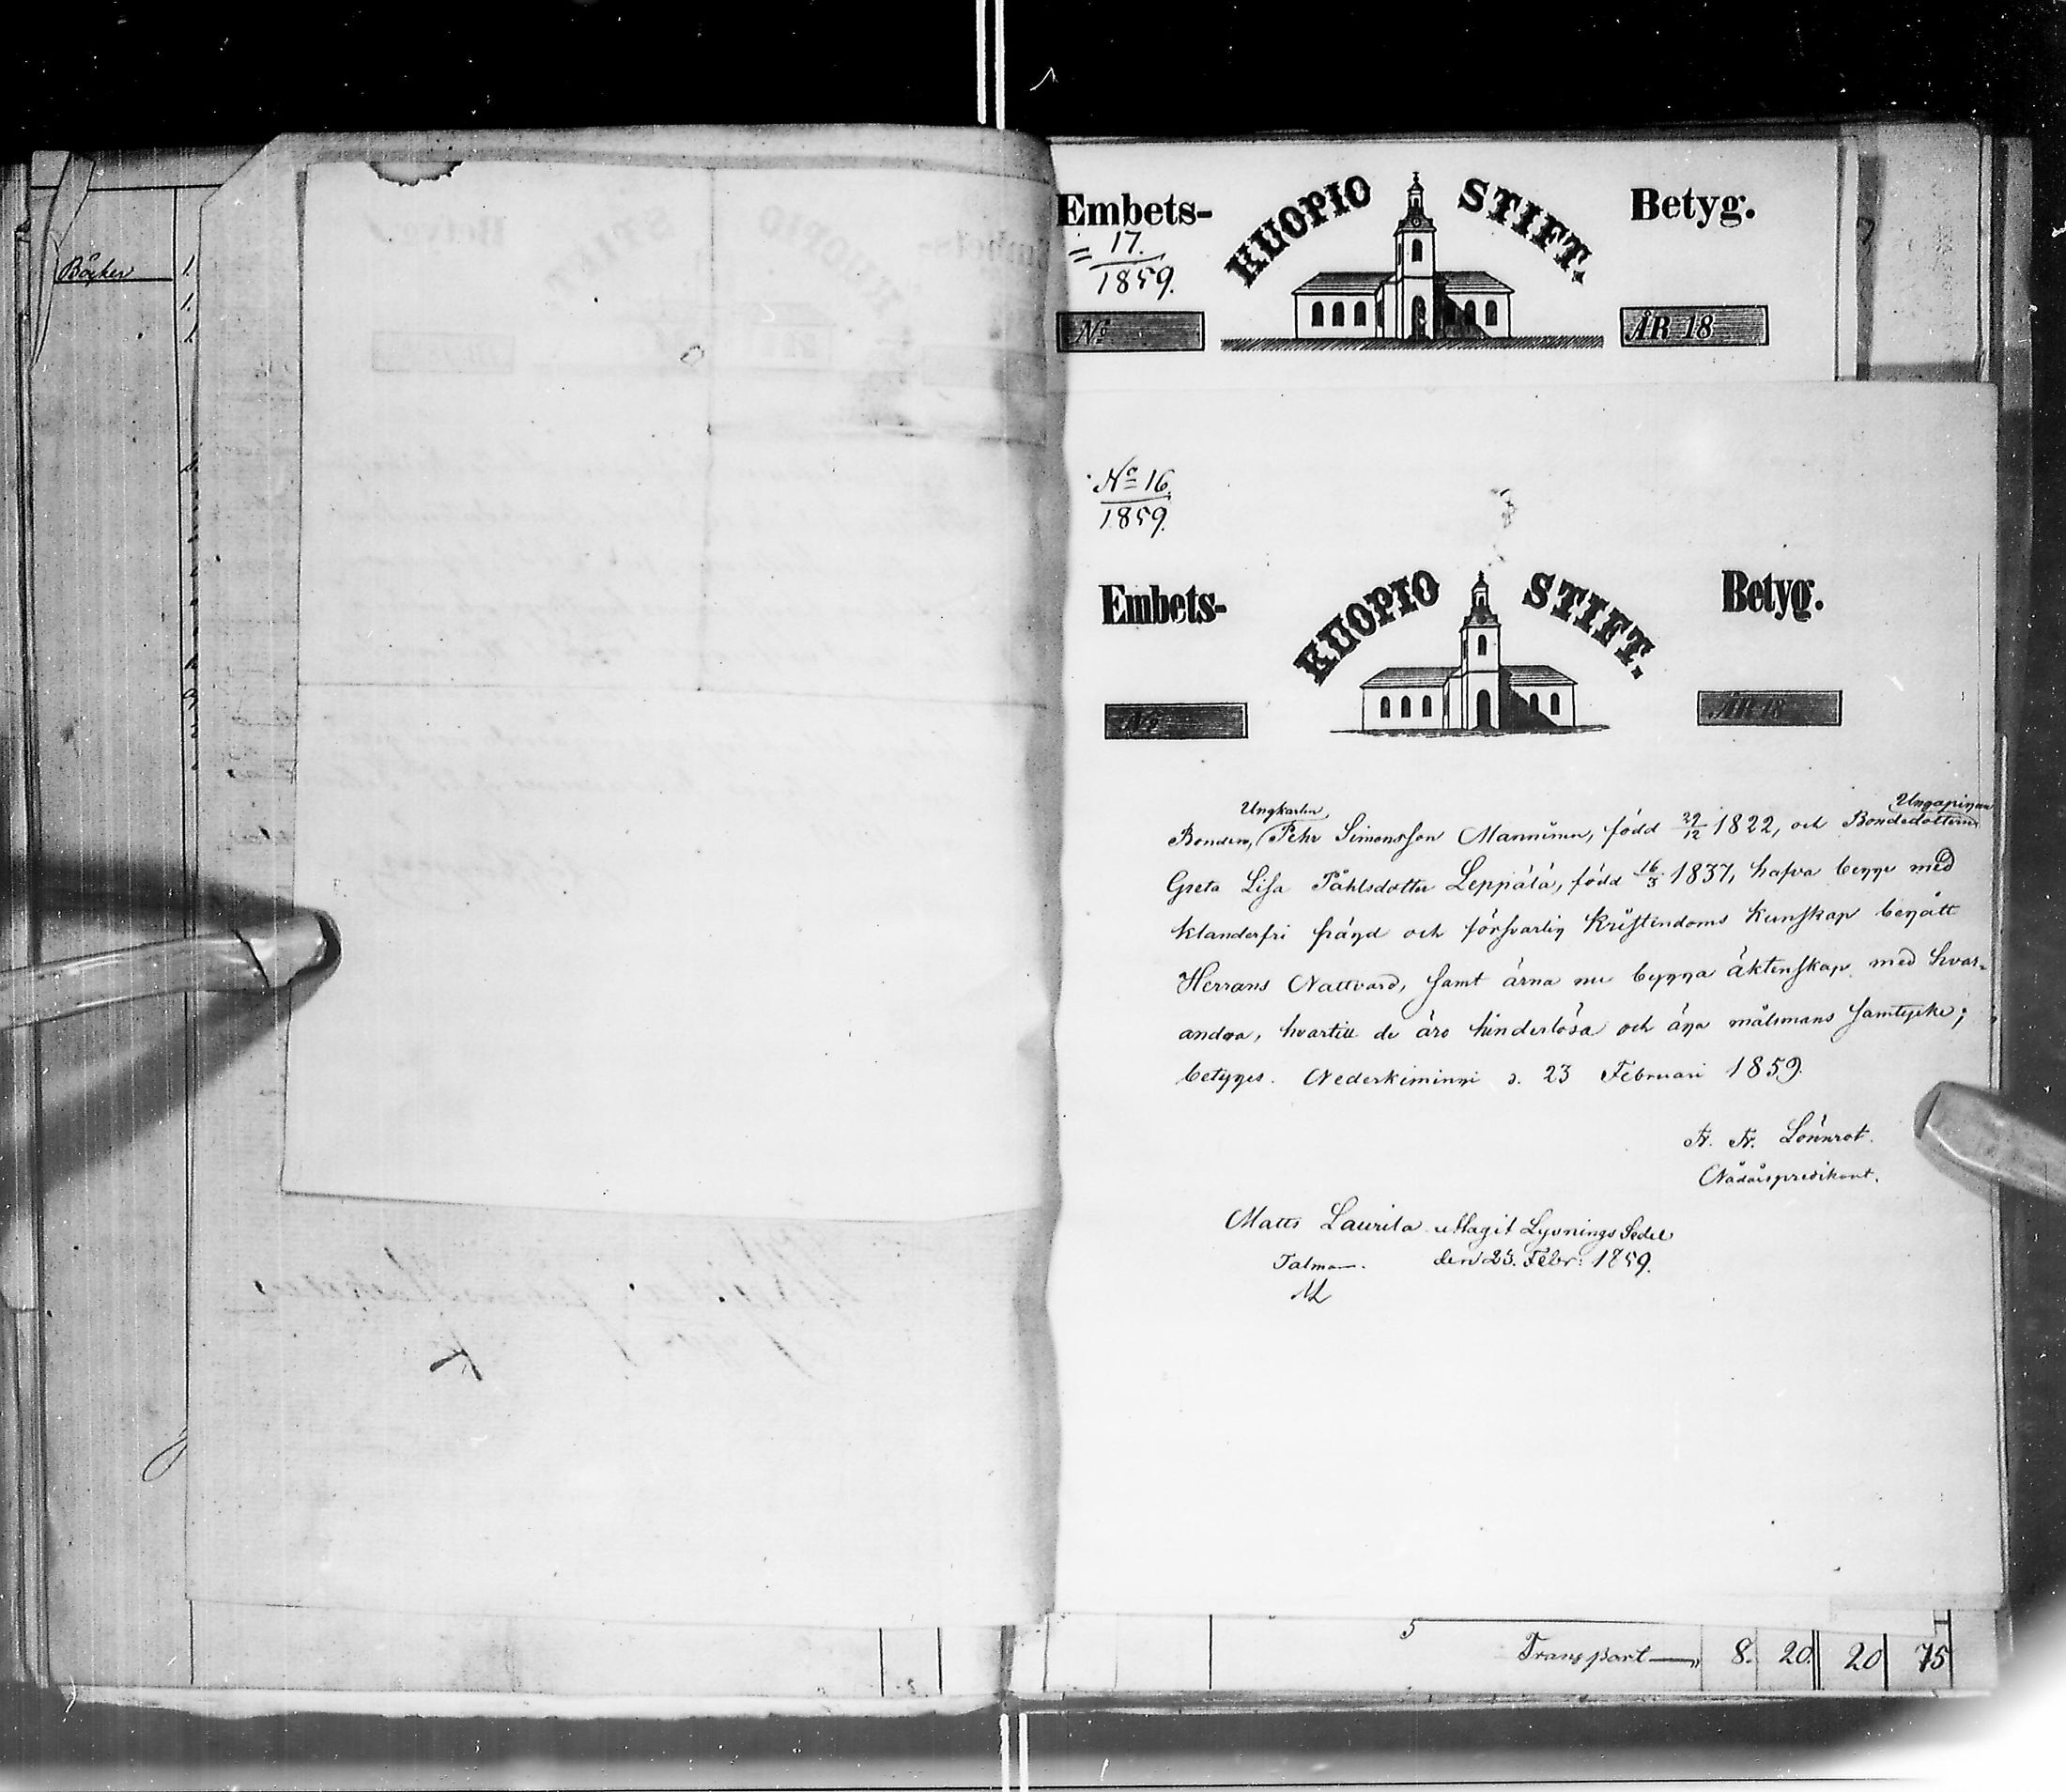 Böcker
Embets-
KUOPIO STIFT.
Betyg.
17.
1859.
No
ÅR 18
No 16
1859.
Embets-
KUOPIO STIFT.
Betyg.
No
ÅR 18
Ungkarlen
Ungapigan
Bonden, Pehr Simonsson Manninen, född 29/12 1822, och Bondedottern
Greta Lisa Påhlsdotter Leppälä, född 16/3 1837, hafva begge med
klanderfri frägd och försvarlig Kristendoms kunskap begått
Herrans Nattvard, samt ärna nu bygga äktenskap med hvar-
andra, hvartill de äro hinderlösa och äga målsmans samtycke;
betyges. Nederkimingi d. 23 Februari 1859.
Lönnrot.
Nådårspredikant.
Matts Laurila uttagit Lysnings Sedel
Talman. den 23. Febr. 1859.
ML
Transport 8. 20 20 75